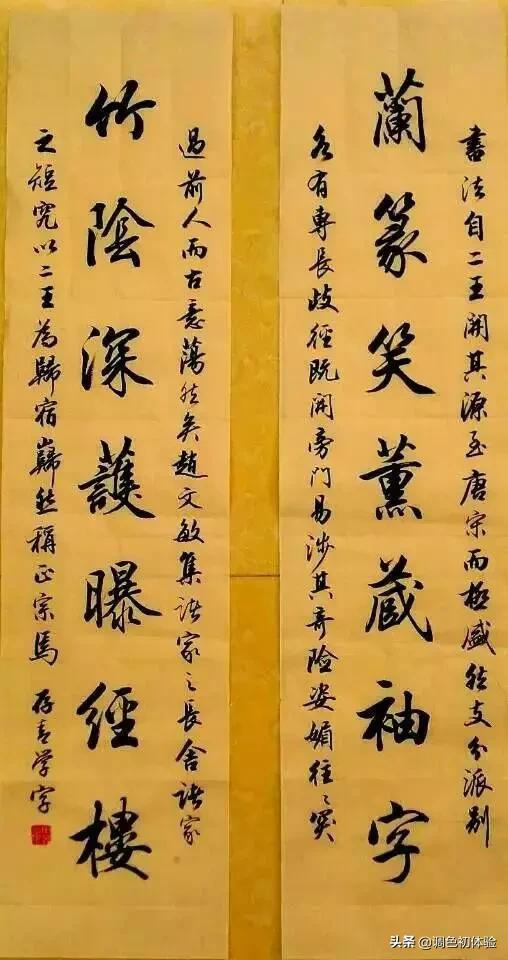 書法自二王開其源至唐宋而極盛然支分派別
蘭篆笑薰蔵袖字
各有專長歧徑既開旁門易涉其奇險姿媚往〻突
過前人而古意蕩然矣趙文敏集諸家之長舍諸家
竹陰深護曝經樓
之短究以二王為歸宿巋然稱正宗焉 存青学字
头条 @调色初体验